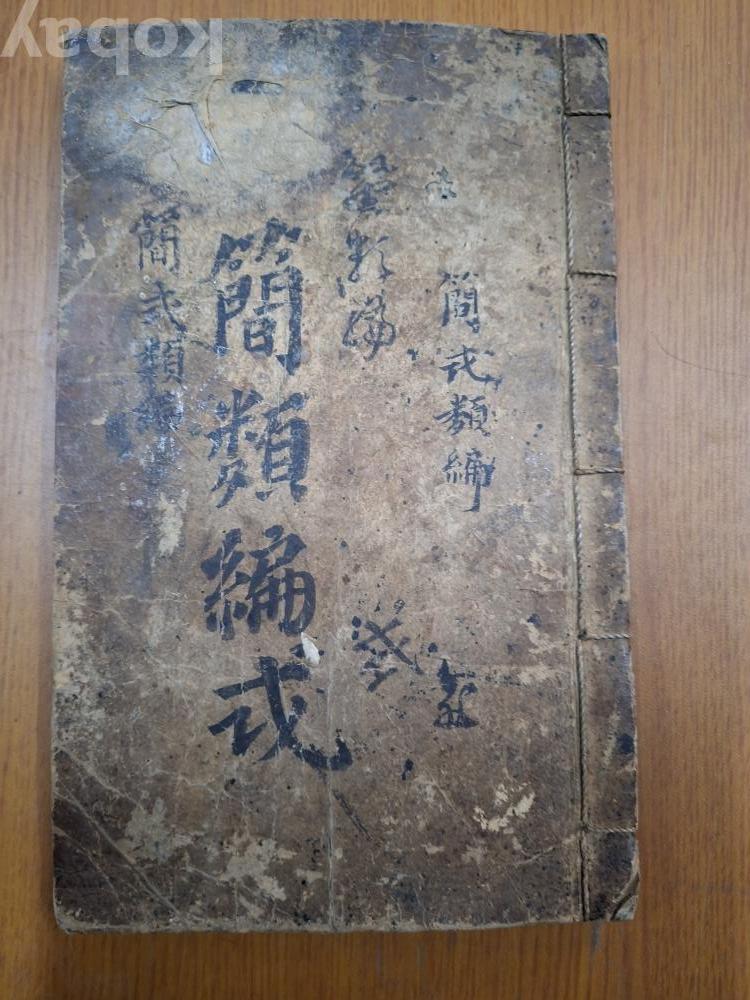 kobay
簡式類編
類編
簡類編式
簡式類編